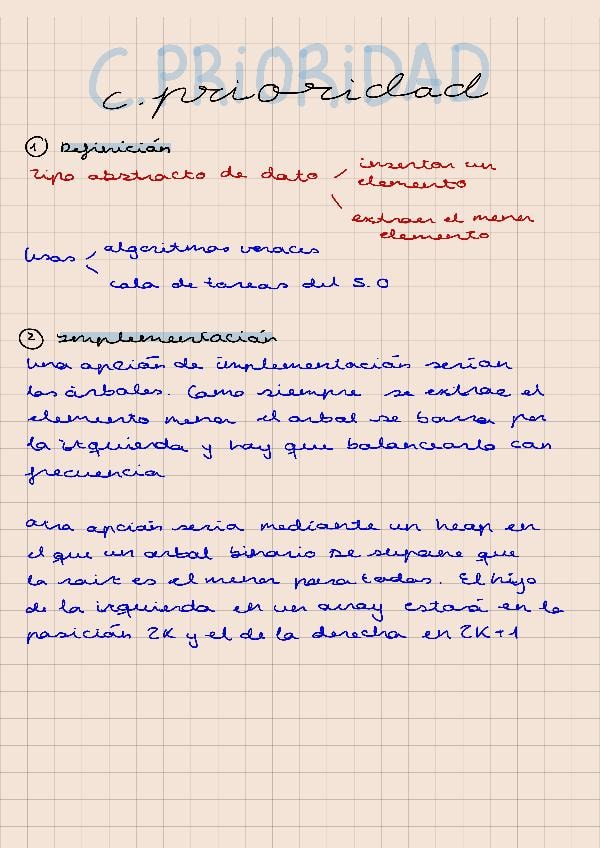 C.PRiORiDAD
c. prioridad
1 Definición
Tipo abstracto de dato / insertar un
elemento
\ extraer el menor
elemento
Usos / algoritmos voraces
\ cola de tareas del S.O
2 Implementación
Una opción de implementación serían
los árboles. Como siempre se extrae el
elemento menor el arbol se borra por
la izquierda y hay que balancearlo con
frecuencia
otra opción seria mediante un heap en
el que un arbol binario se supone que
la raiz es el menor para todos. El hijo
de la izquierda en un array estará en la
posición 2K y el de la derecha en 2K+1